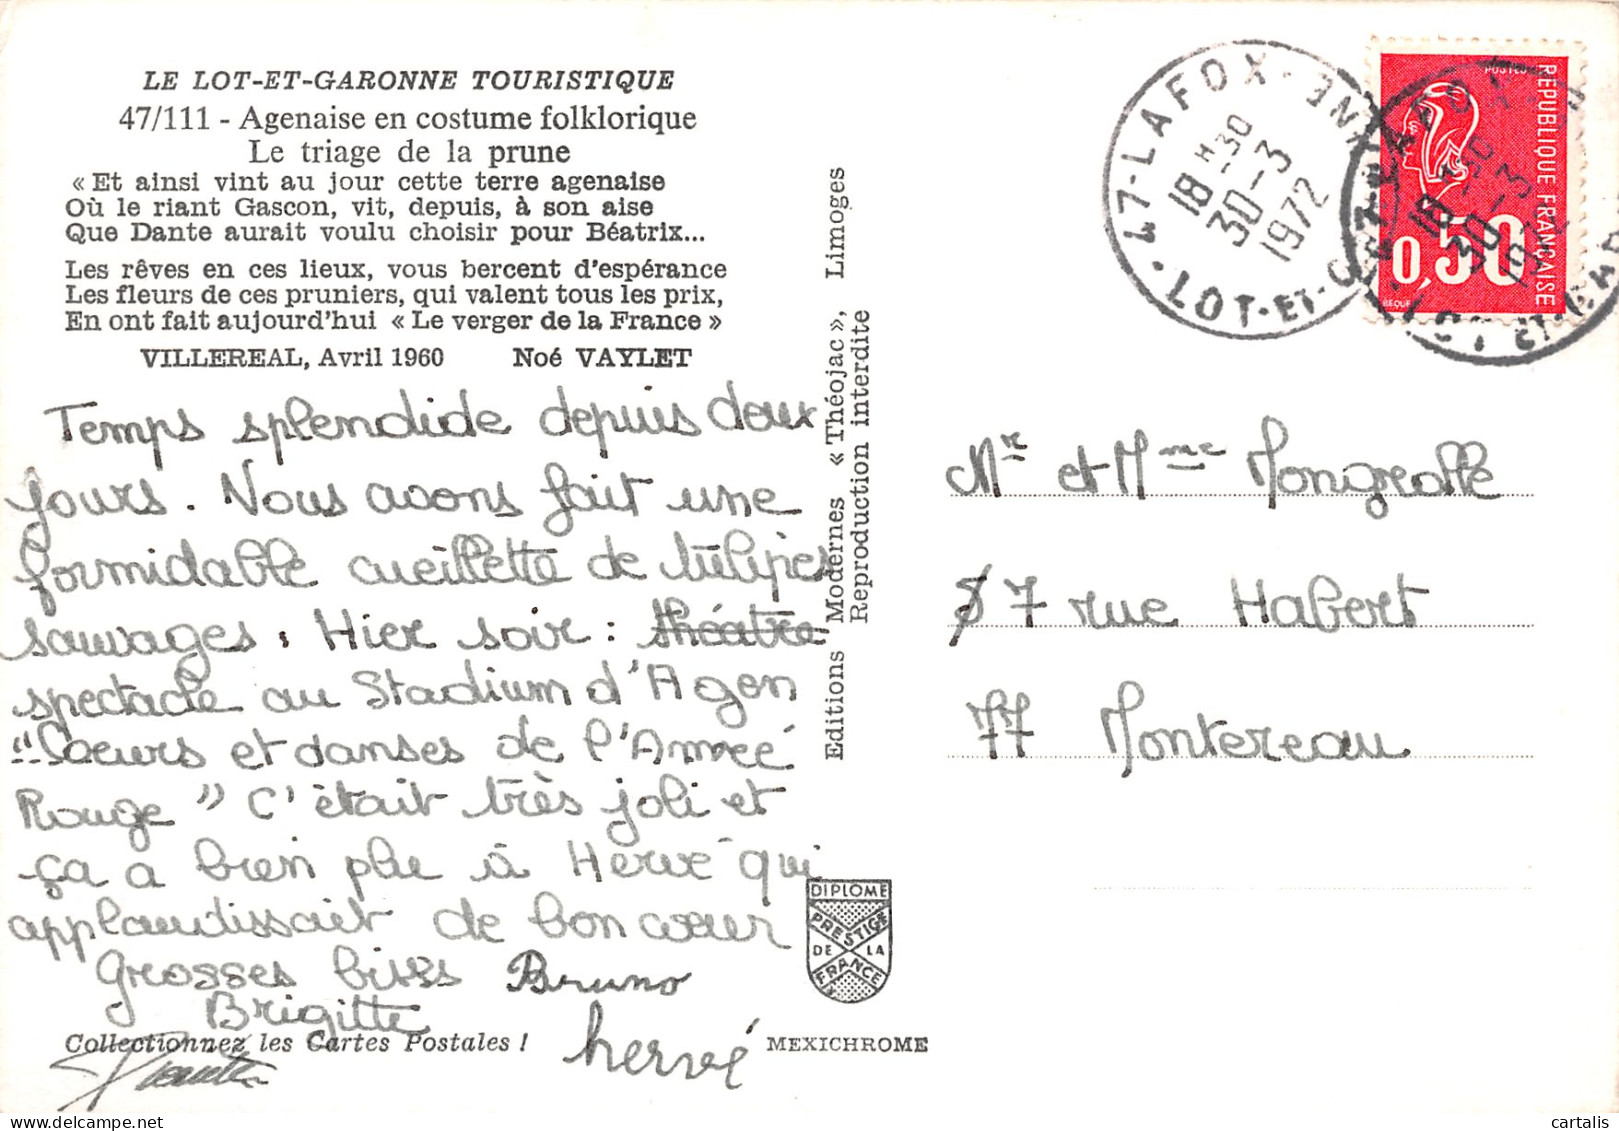 LE LOT-ET-GARONNE TOURISTIQUE
47/111 - Agenaise en costume folklorique
Le triage de la prune
« Et ainsi vint au jour cette terre agenaise
Où le riant Gascon, vit, depuis, à son aise
Que Dante aurait voulu choisir pour Béatrix...
Les rêves en ces lieux, vous bercent d'espérance
Les fleurs de ces pruniers, qui valent tous les prix,
En ont fait aujourd'hui « Le verger de la France »
VILLEREAL, Avril 1960 Noé VAYLET
Temps splendide depuis deux
jours. Nous avons fait une
formidable cueillette de tulipes
sauvages. Hier soir : théatre
spectacle au Stadium d'Agen
"Coeurs et danses de l'Armée
Rouge" C'était très joli et
ça a bien plu à Hervé qui
applaudissait de bon cœur
Grosses bises Bruno
Brigitte
hervé
Collectionnez les Cartes Postales !
MEXICHROME
Editions Modernes « Théojac », Limoges
Reproduction interdite
DIPLOME
PRESTIGE
DE LA
FRANCE
47-LAFOX-
18 H-30
30-3
1972
LOT-ET-G
POSTES
REPUBLIQUE FRANÇAISE
0,50
BEQUET
18 H-30
30-3
Mr et Mme Mongreolle
57 rue Habert
77 Montereau